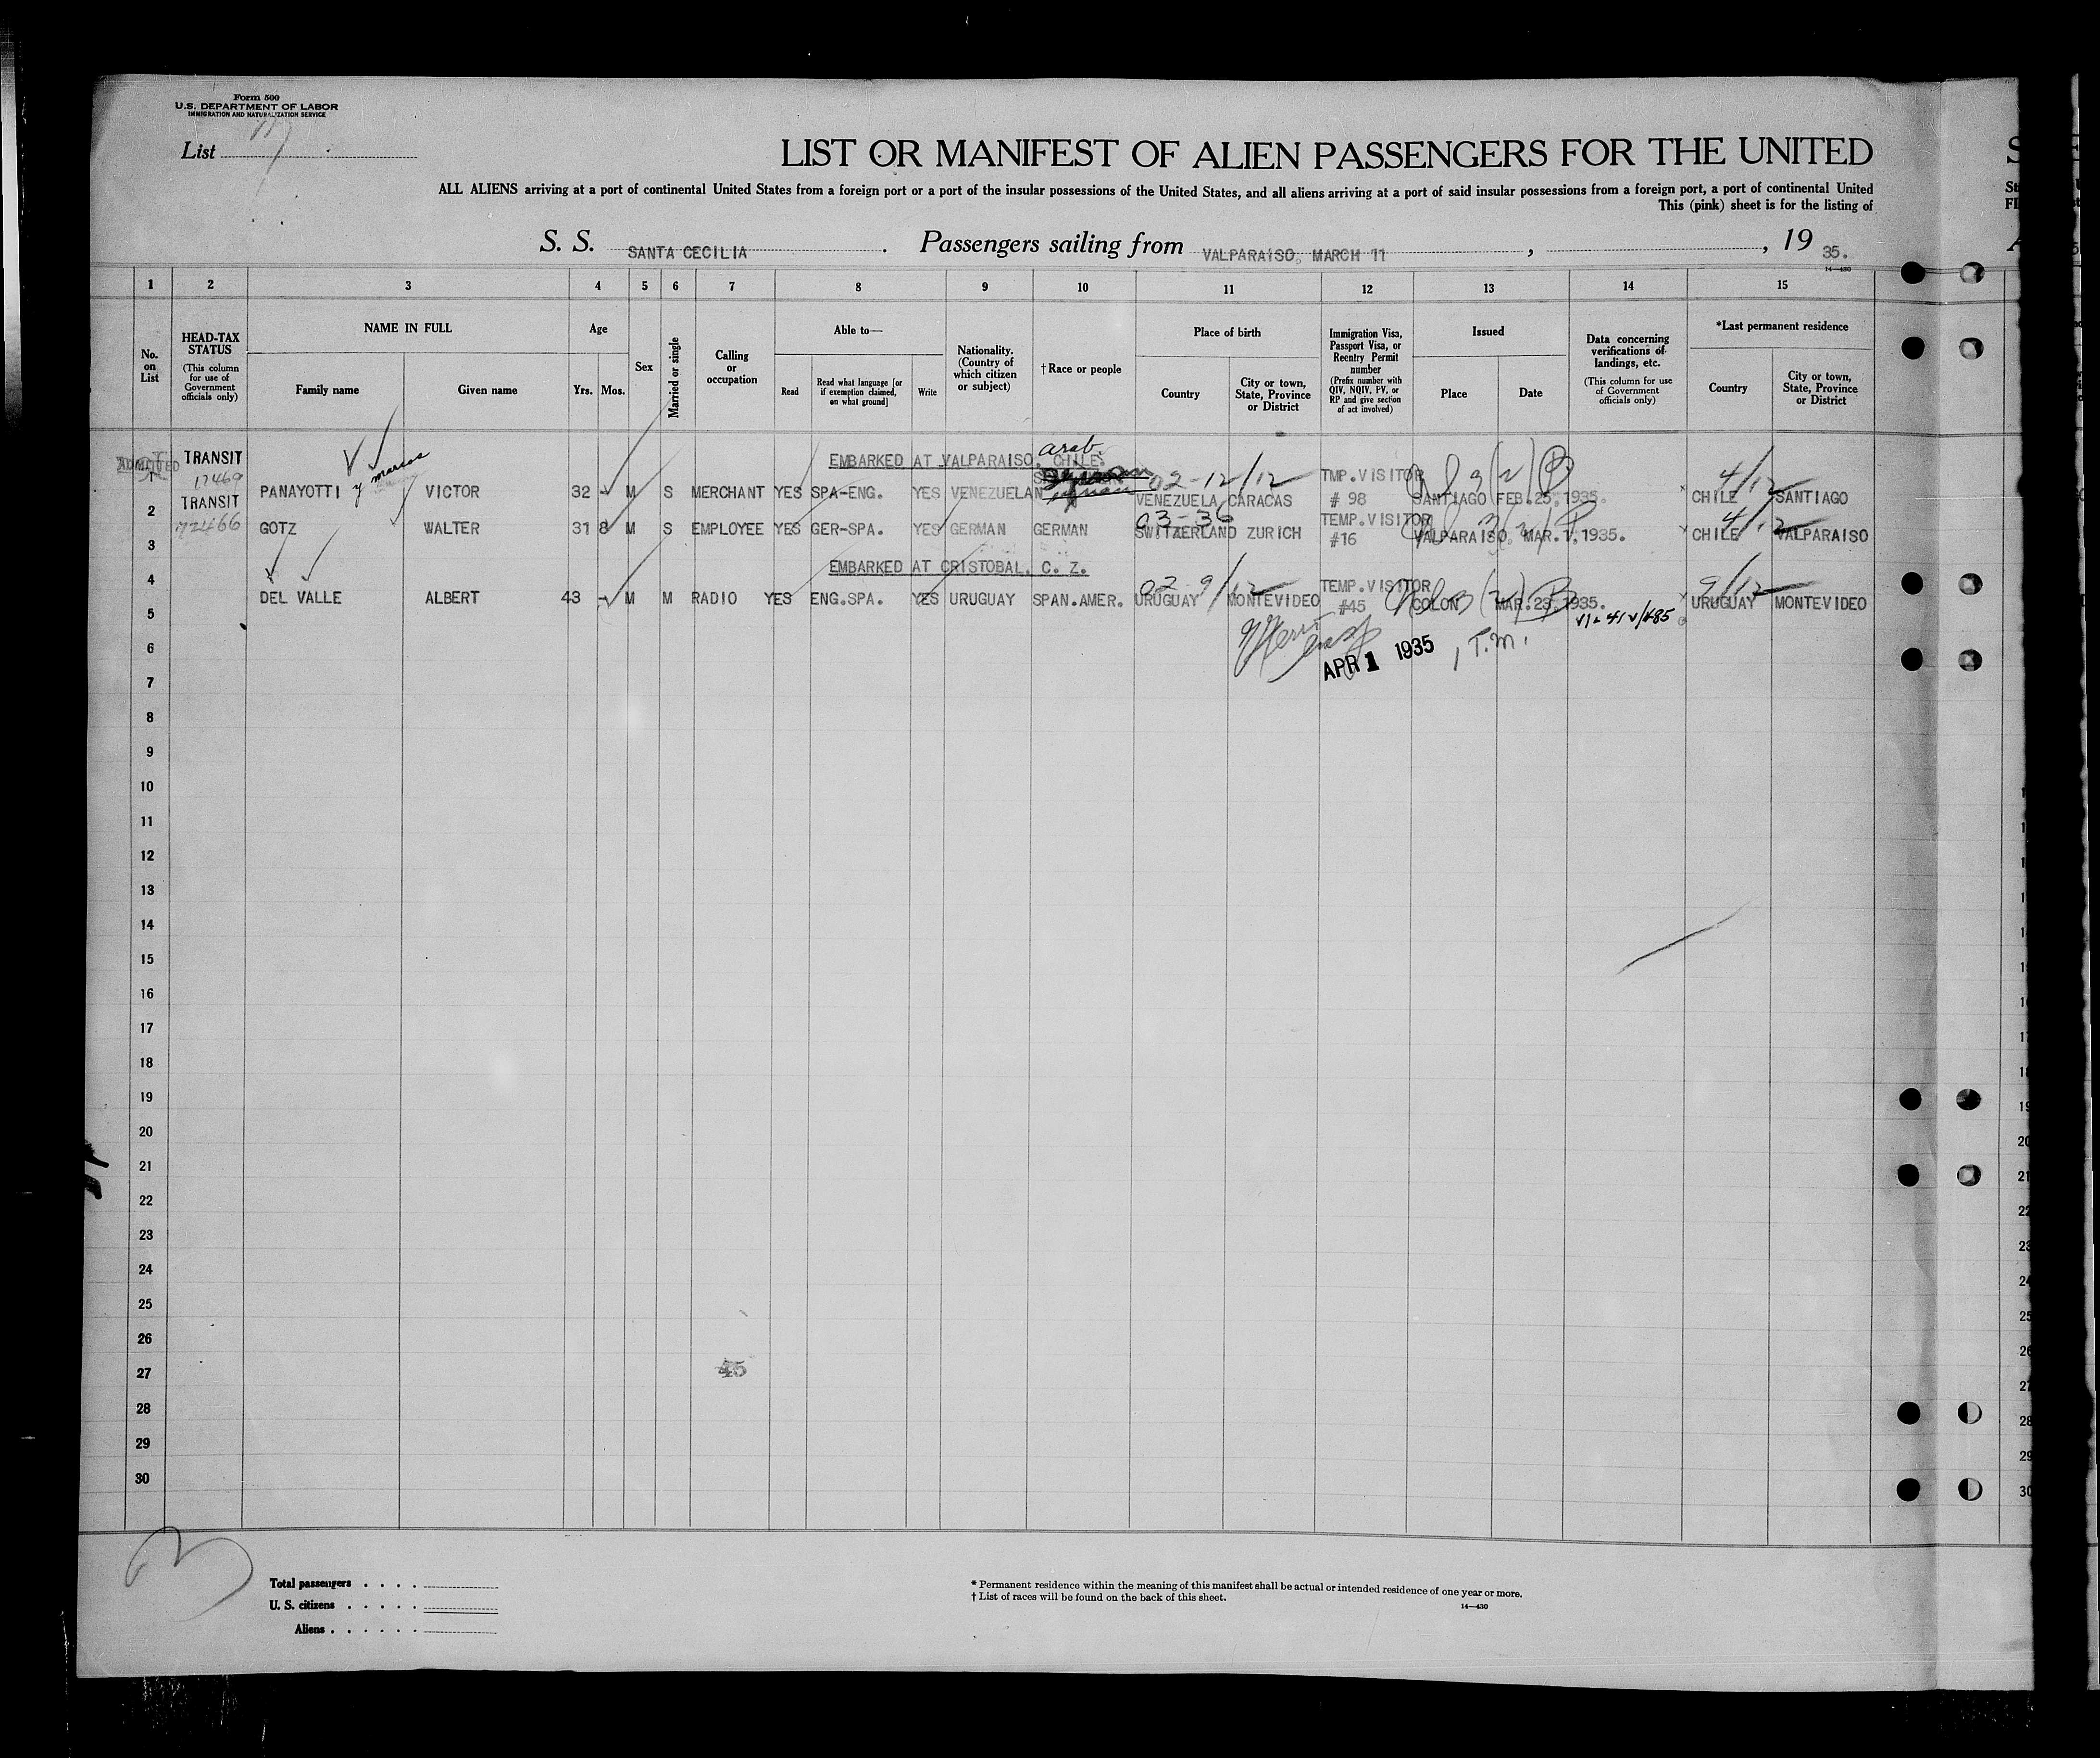 Form 500
U.S. DEPARTMENT OF LABOR
IMMIGRATION AND NATURALIZATION SERVICE
List
LIST OR MANIFEST OF ALIEN PASSENGERS FOR THE UNITED
ALL ALIENS arriving at a port of continental United States from a foreign port or a port of the insular possessions of the United States, and all aliens arriving at a port of said insular possessions from a foreign port, a port of continental United
This (pink) sheet is for the listing of
S. S. SANTA CECILIA. Passengers sailing from VALPARAISO, MARCH 11, , 19 35.
14—430
1 2 3 4 5 6 7 8 9 10 11 12 13 14 15
No. on List
HEAD-TAX STATUS (This column for use of Government officials only)
NAME IN FULL
Family name Given name
Age
Yrs. Mos.
Sex
Married or single
Calling or occupation
Able to—
Read Read what language [or if exemption claimed, on what ground] Write
Nationality. (Country of which citizen or subject)
†Race or people
Place of birth
Country City or town, State, Province or District
Immigration Visa, Passport Visa, or Reentry Permit number (Prefix number with QIV, NQIV, PV, or RP and give section of act involved)
Issued
Place Date
Data concerning verifications of landings, etc. (This column for use of Government officials only)
*Last permanent residence
Country City or town, State, Province or District
ADMITTED TRANSIT EMBARKED AT VALPARAISO, CHILE. arab.
1 17469 PANAYOTTI y marcos VICTOR 32 - M S MERCHANT YES SPA-ENG. YES VENEZUELAN 02-12/12 VENEZUELA CARACAS TMP.VISITOR # 98 SANTIAGO FEB.25,1935. 4/12 CHILE SANTIAGO
2 TRANSIT 72466 GOTZ WALTER 31 8 M S EMPLOYEE YES GER-SPA. YES GERMAN GERMAN 03-36 SWITZERLAND ZURICH TEMP.VISITOR #16 VALPARAISO, MAR.1,1935. 4/12 CHILE VALPARAISO
3
EMBARKED AT CRISTOBAL, C. Z.
4 DEL VALLE ALBERT 43 - M M RADIO YES ENG.SPA. YES URUGUAY SPAN.AMER. 02-9/12 URUGUAY MONTEVIDEO TEMP.VISITOR #45 COLON MAR.23,1935. 9/12 URUGUAY MONTEVIDEO
5
6 APR 1 1935 , T.M.
7
8
9
10
11
12
13
14
15
16
17
18
19
20
21
22
23
24
25
26
27 45
28
29
30
Total passengers . . . .
U. S. citizens . . . . .
Aliens . . . . . .
* Permanent residence within the meaning of this manifest shall be actual or intended residence of one year or more.
† List of races will be found on the back of this sheet.
14—430